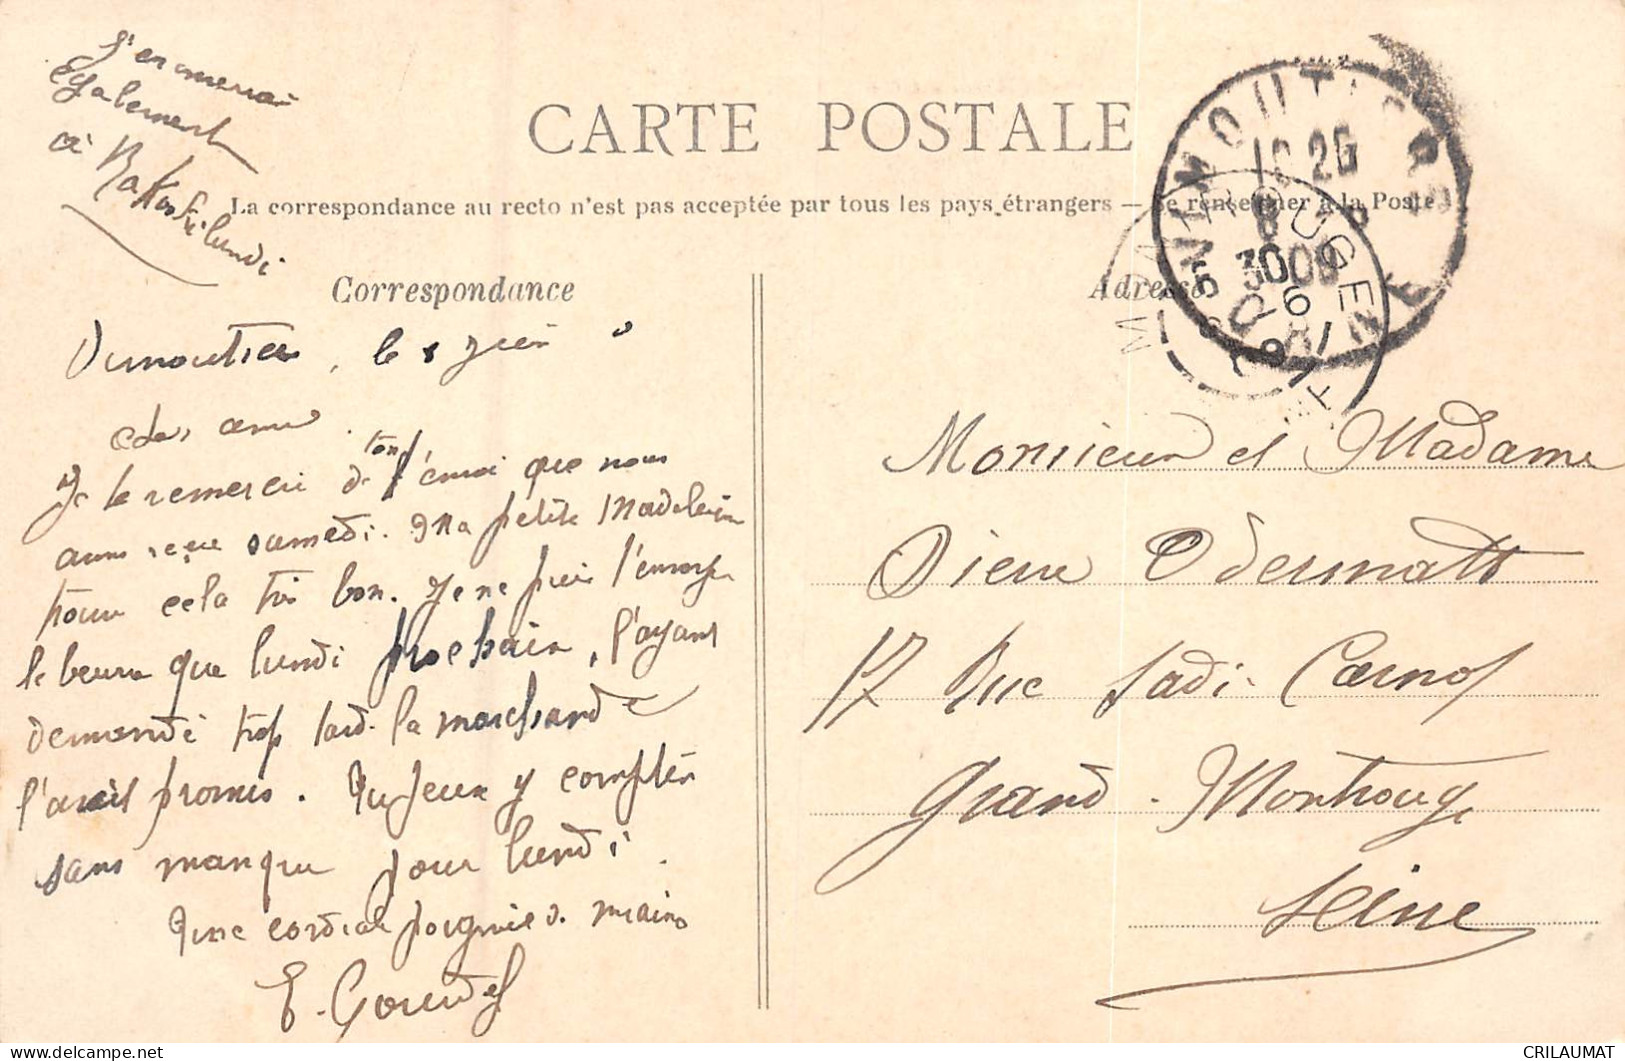 J'en enverrai
également
à
CARTE POSTALE
La correspondance au recto n'est pas acceptée par tous les pays étrangers — Se renseigner à la Poste
Correspondance
Adresse
VIMOUTIERS
18 26
8
6
09
ORNE
MONTROUGE
SEINE
Vimoutiers, le 8 Juin
Cher ami
Je te remercie de ton envoi que nous
avons reçu samedi. Ma petite Madeleine
trouve cela très bon. Je ne puis t'envoyer
le beurre que lundi prochain, l'ayant
demandé trop tard. la marchande
l'avait promis. Tu peux y compter
sans manque pour lundi.
Une cordiale poignée d. mains
E.
Monsieur et Madame
Odermatt
17 Rue Sadi-Carnot
Grand-Montrouge
Seine
CRILAUMAT